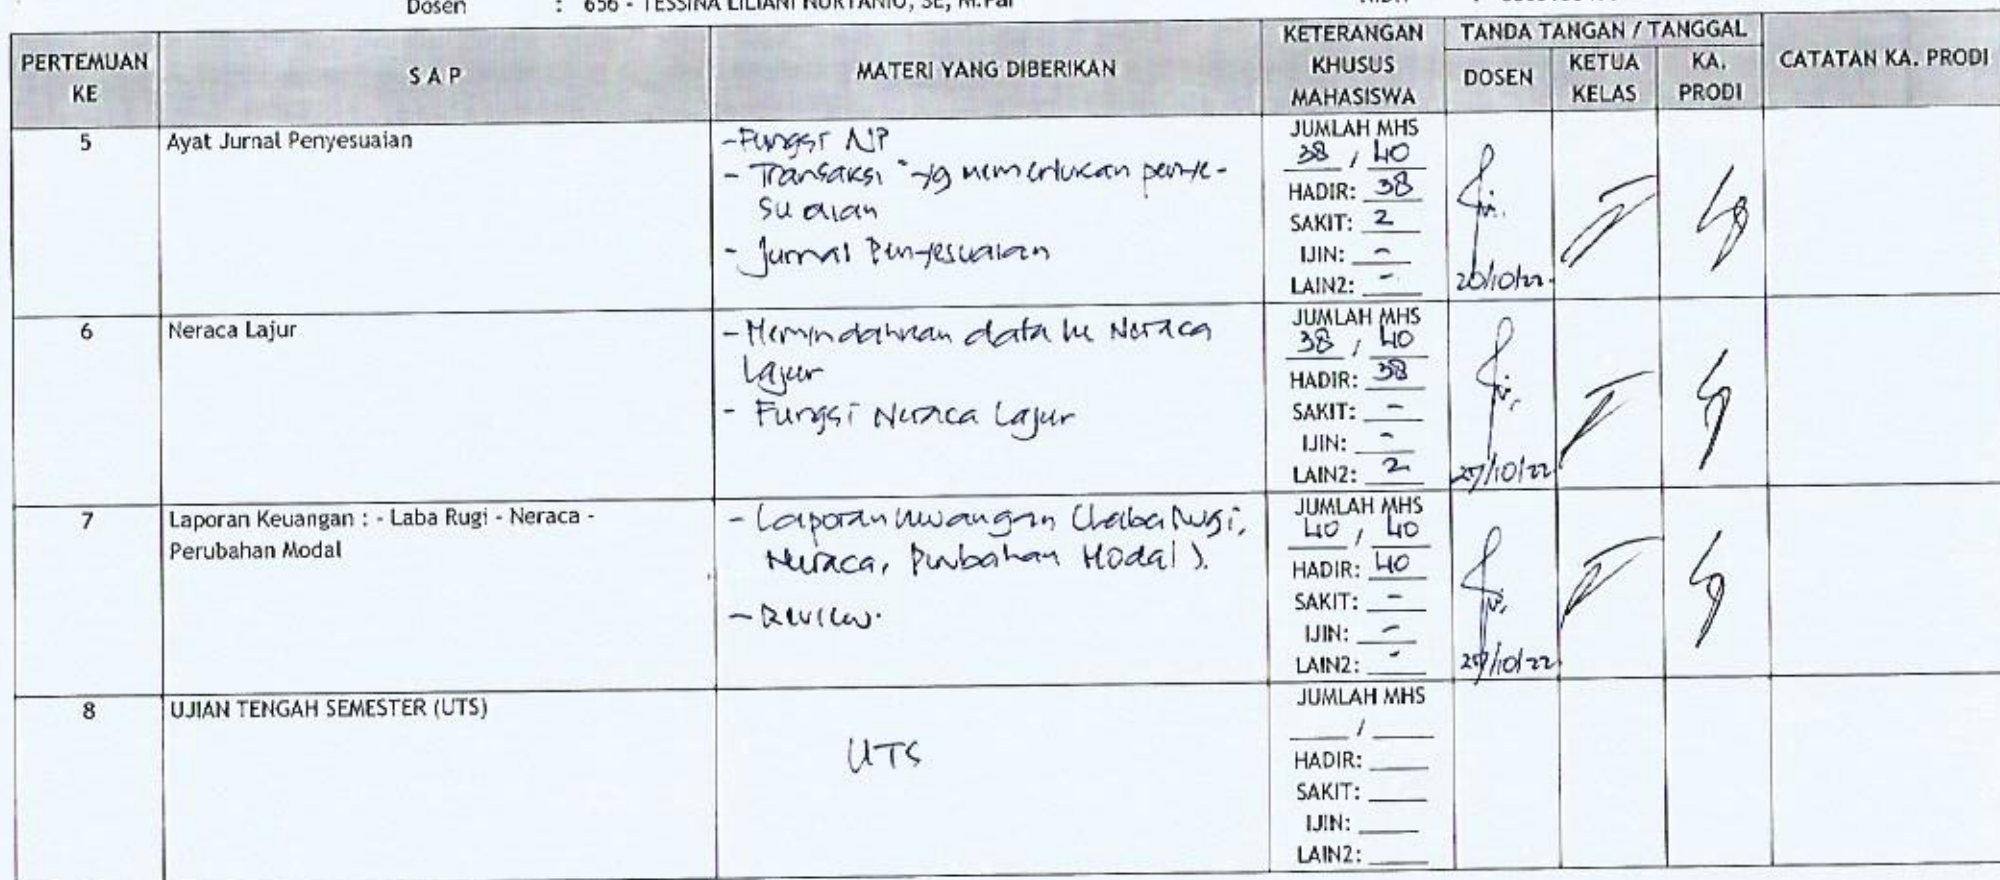 Dosen : 656 - TESSINA LILIANI NURTANIO, SE, M.Par
PERTEMUAN KE
S A P
MATERI YANG DIBERIKAN
KETERANGAN KHUSUS MAHASISWA
TANDA TANGAN / TANGGAL
DOSEN
KETUA KELAS
KA. PRODI
CATATAN KA. PRODI
5
Ayat Jurnal Penyesuaian
- Fungsi AJP
- Transaksi" yg memerlukan penye-
suaian
- Jurnal Penyesuaian
JUMLAH MHS
38 / 40
HADIR: 38
SAKIT: 2
IJIN: -
LAIN2: -
20/10/22
6
Neraca Lajur
- Memindahkan data ke Neraca
Lajur
- Fungsi Neraca Lajur
JUMLAH MHS
38 / 40
HADIR: 38
SAKIT: -
IJIN: -
LAIN2: 2
27/10/22
7
Laporan Keuangan : - Laba Rugi - Neraca -
Perubahan Modal
- Laporan keuangan (Laba Rugi,
Neraca, Perubahan Modal).
- Review.
JUMLAH MHS
40 / 40
HADIR: 40
SAKIT: -
IJIN: -
LAIN2: -
/10/22
8
UJIAN TENGAH SEMESTER (UTS)
UTS
JUMLAH MHS
___ / ___
HADIR: ___
SAKIT: ___
IJIN: ___
LAIN2: ___